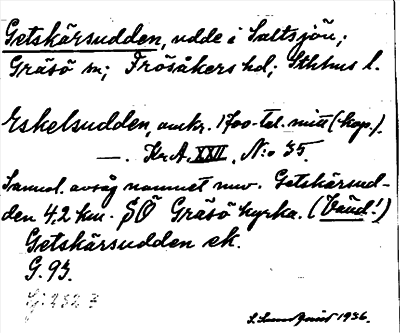 Getskärsudden, udde i Saltsjön;
Gräsö sn; Frösåkers hd; Sthlms l.
Eskelsudden, omkr. 1700-tal. mitt (kop.).
—. Kr.A. XXII, N:o 35.
Sannol. avsåg namnet nuv. Getskärsud-
den 4.2 km. SÖ Gräsö kyrka. (Vänd!)
Getskärsudden ek.
G. 93.
S. Lundqvist 1936.